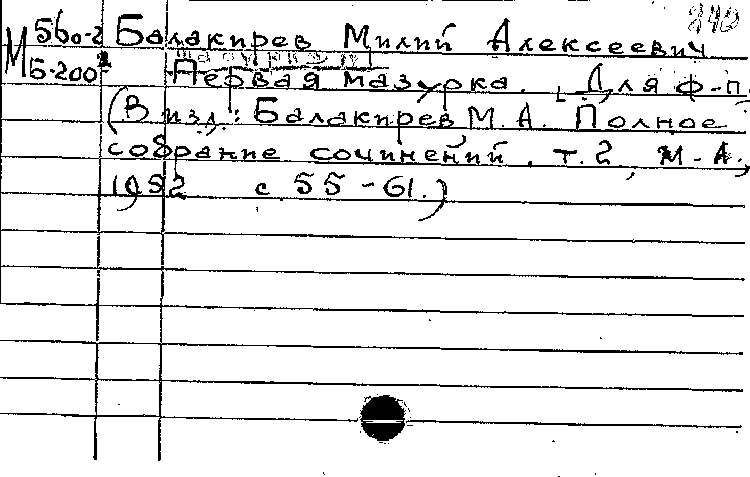 840
М 560-2 Балакирев Милий Алексеевич
Б-200 [Мазурки]
Первая мазурка. [Для ф-п.
(В изд.: Балакирев М. А. Полное
собрание сочинений. т. 2, М.-Л.,
1952 с. 55-61.)